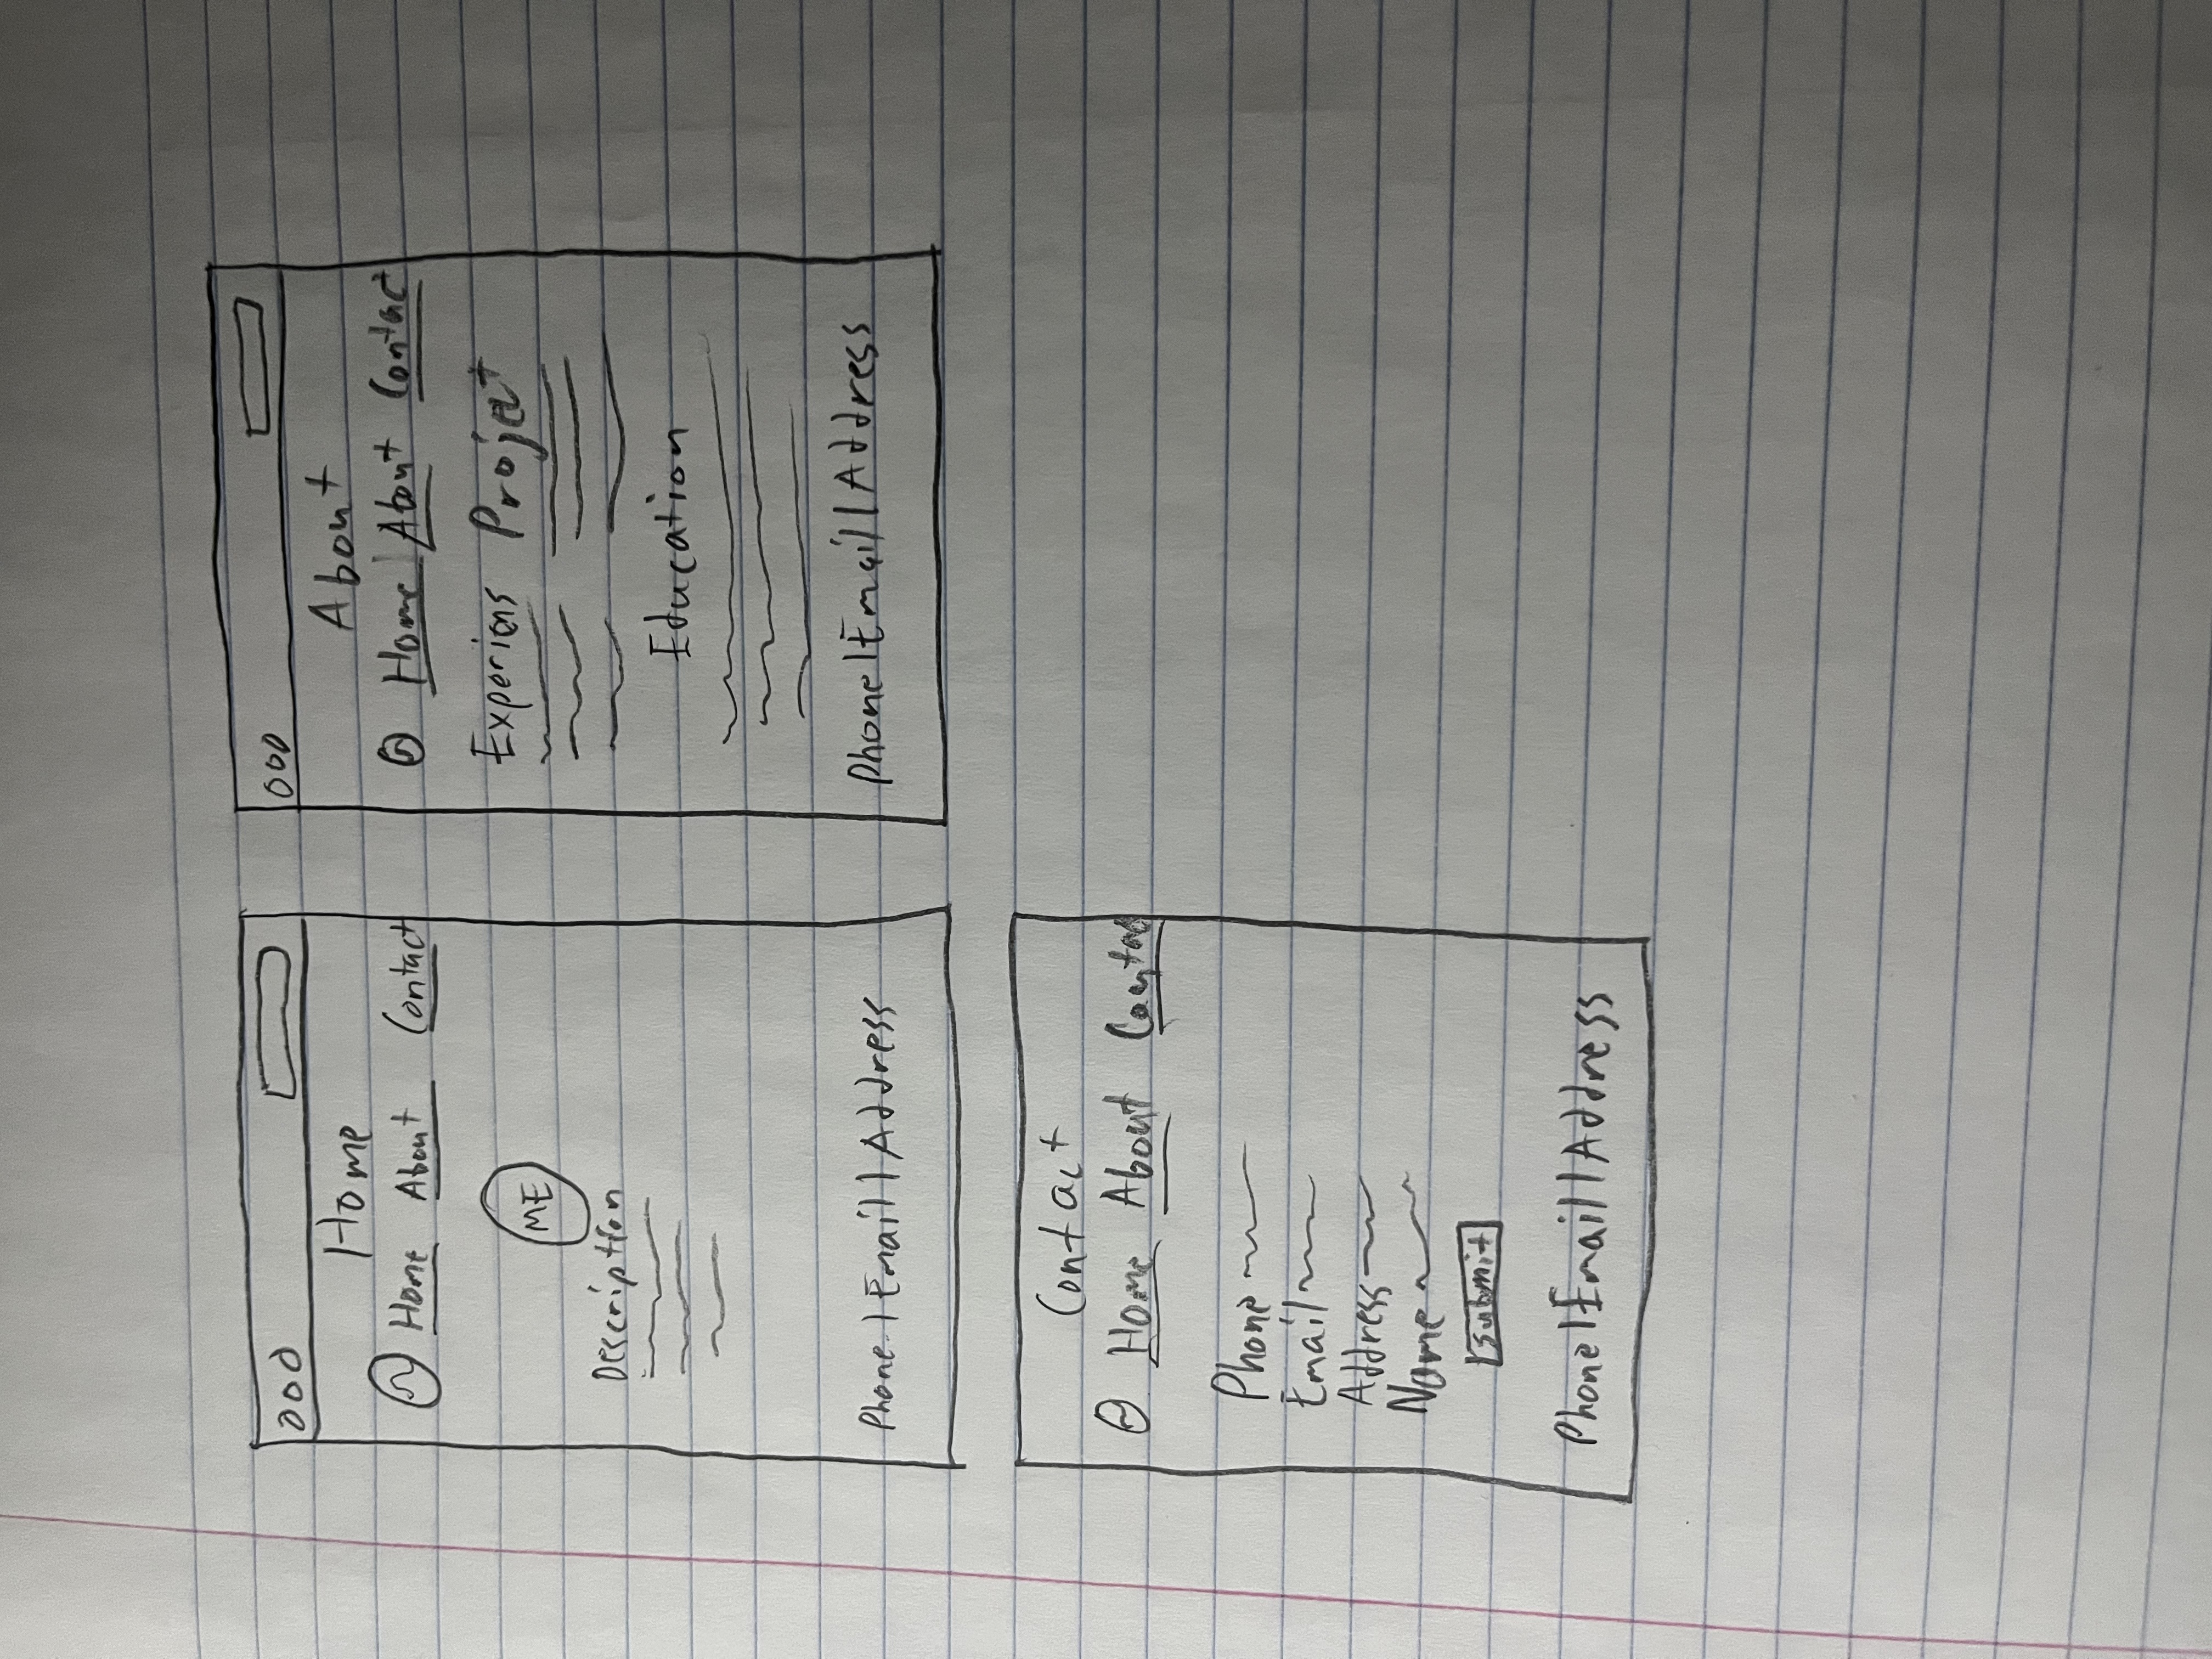 Home
Home About Contact
ME
Description
Phone | Email | Address
About
Home About Contact
Experiens Project
Education
Phone | Email | Address
Contact
Home About Contac
Phone
Email
Address
Name
submit
Phone | Email | Address